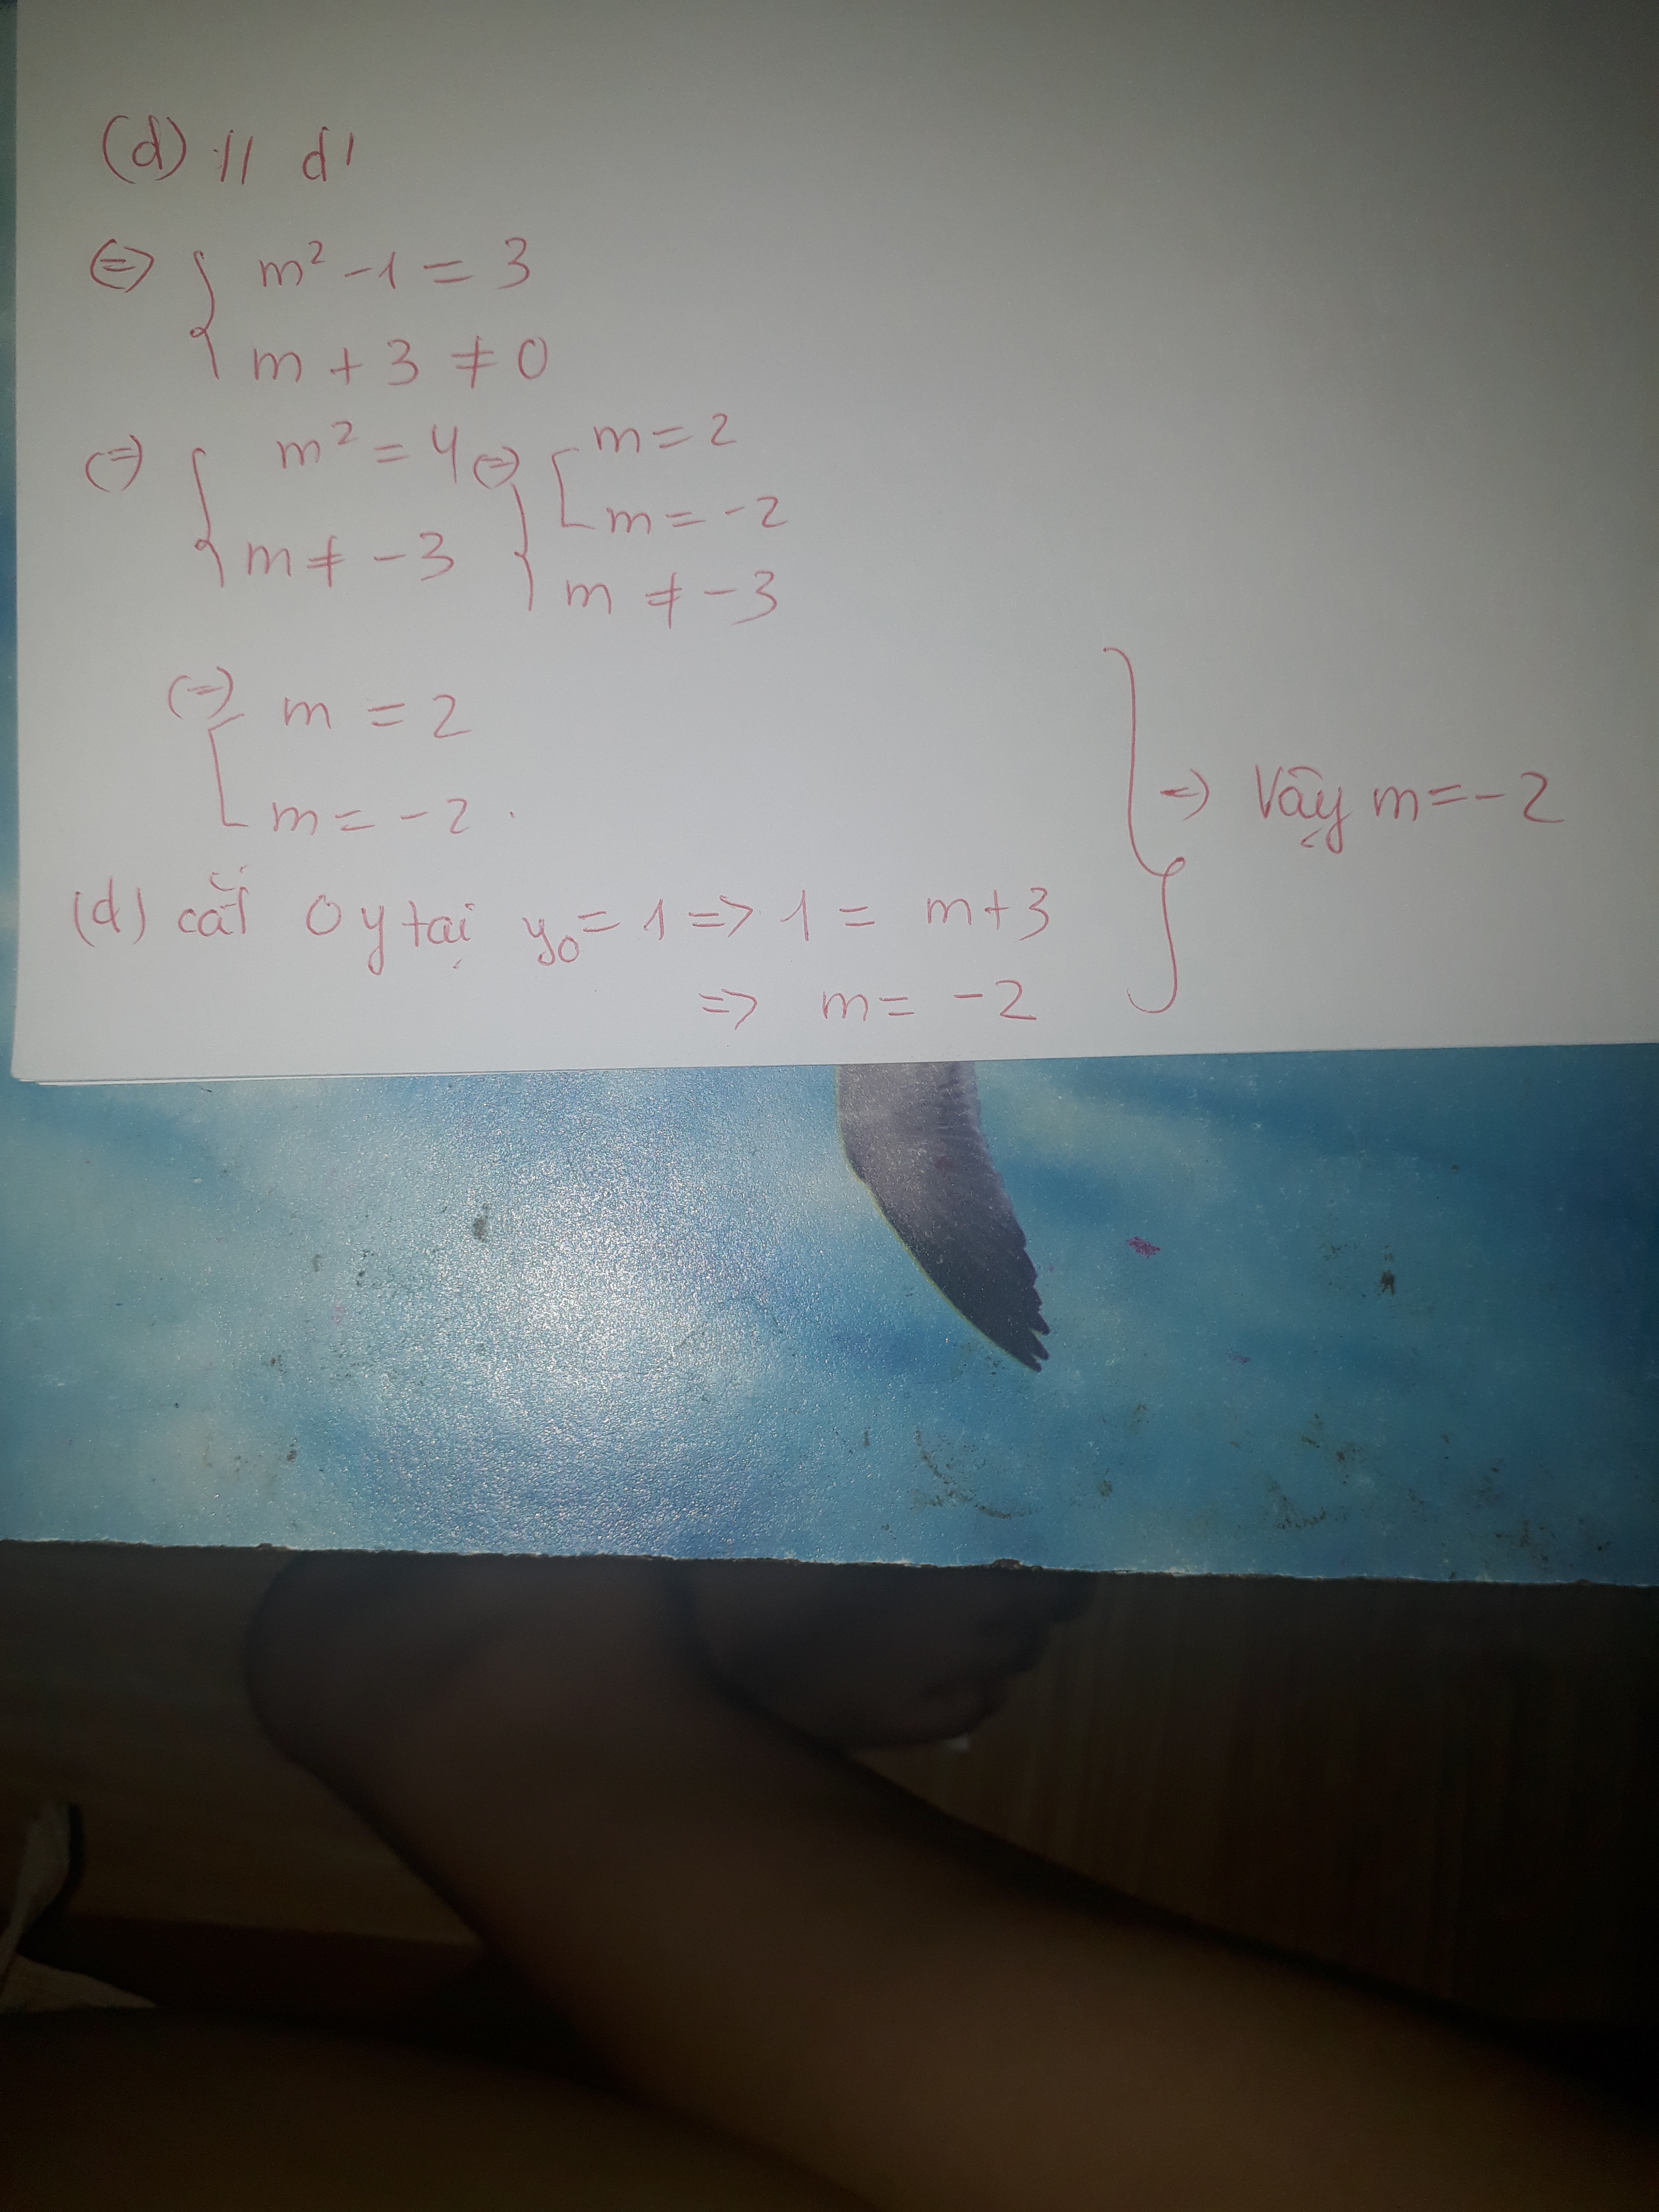 (d) // d'
⇔ { m² - 1 = 3
m + 3 ≠ 0
⇔ { m² = 4 ⇔ { [ m = 2
m = -2
m ≠ -3 m ≠ -3
⇔ [ m = 2
m = -2.
(d) cắt Oy tại y₀ = 1 => 1 = m + 3
=> m = -2
} => Vậy m = -2